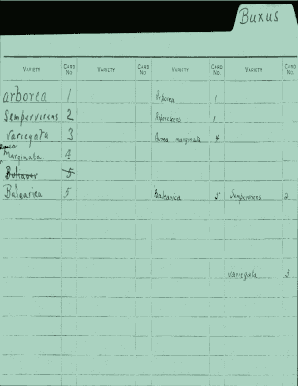 Buxus
VARIETY CARD NO. VARIETY CARD NO. VARIETY CARD NO. VARIETY CARD NO.
arborea 1 Arborea 1
Sempervirens 2 1
Variegata 3 marginata 4
Marginata 4
5
Balgarica 5 Balcanica 5 Sempervirens 2
variegata 3